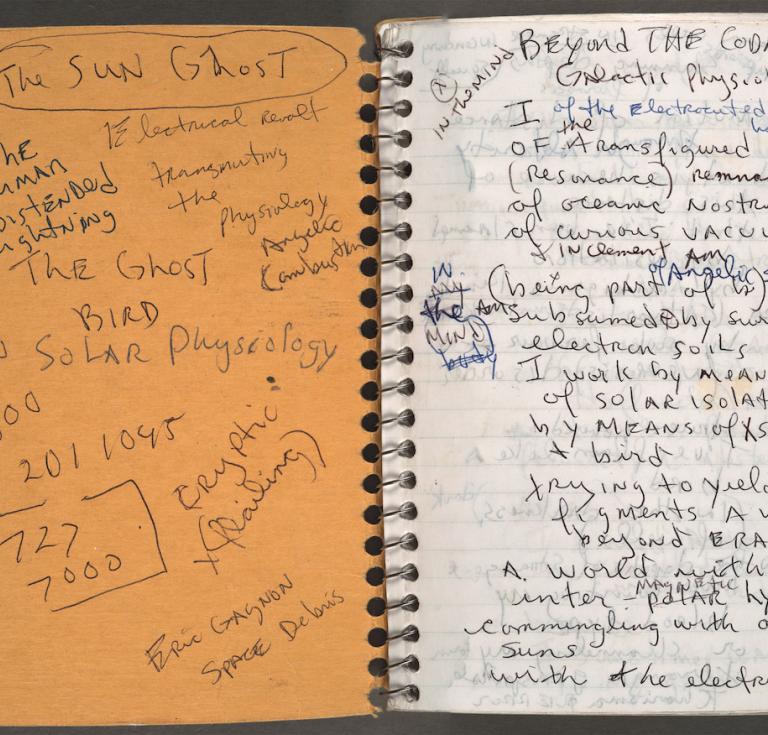 The SUN GHOST
Electrical revolt
transmuting
the
physiology
Angelic
Combustion
THE
HUMAN
DISTENDED
Lightning
THE GHOST
BIRD
SOLAR Physiology
201 1095
727
7000
CRYPTIC
Eric GAGNON
SPACE Debris
IN THE MIND
BEYOND THE CODA
GAlactic Physio
I of the Electrocuted
the
OF transfigured
(resonance) remna
of oceanic NOSTR
of curious VACU
& INclement AM
of Angelic
(being part of
IN
the
MIND
body
subsumed by su
electron soils
I work by MEAN
of SOLAR ISOLAT
by MEANS of
bird
trying to yiel
figments A
beyond ERA
A world with
MAGNETIC
inter-polAR
commingling with
SUNS
with the electr